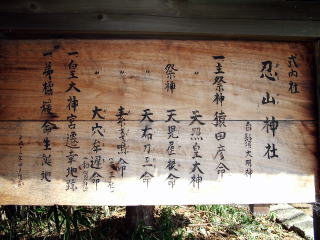 式内社
忍山神社
白鬚大明神
一主祭神 猿田彦命
〃 天照皇大神
祭神 天児屋根命
〃 天布刀玉命
〃 素盞嗚命
〃 大穴牟遅命
一皇大神宮遷幸地跡
一弟橘媛命生誕地